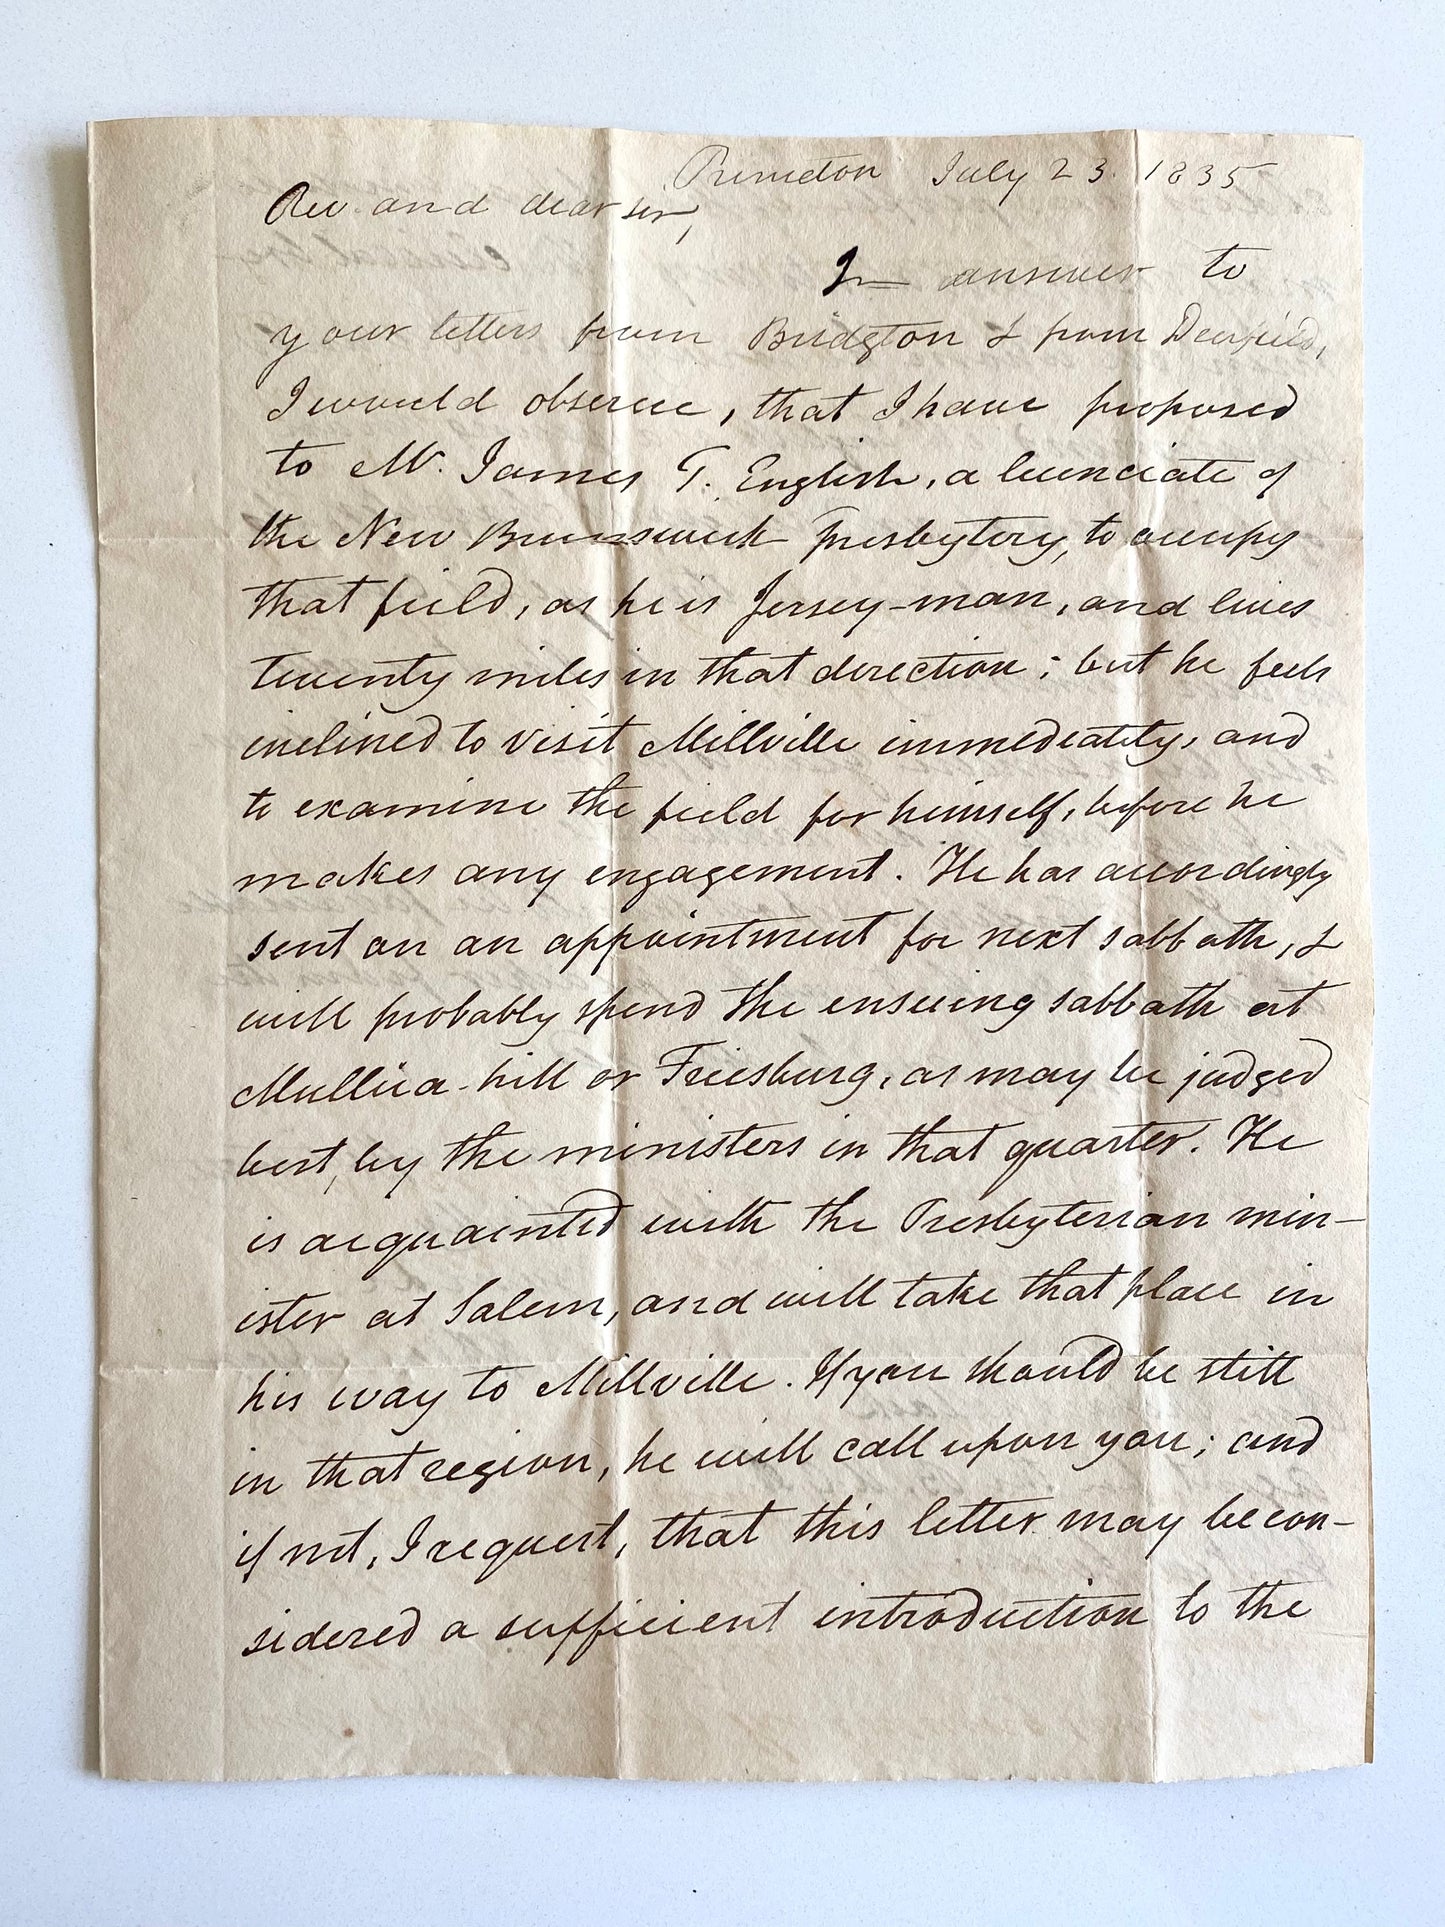 Princeton July 23. 1835
Rev. and dear sir,
In answer to
your letters from Bridgton & from Deerfield,
I would observe, that I have proposed
to Mr. James T. English, a licenciate of
the New Brunswick Presbytery, to occupy
that field, as he is Jersey-man, and lives
twenty miles in that direction; but he feels
inclined to visit Millville immediately, and
to examine the field for himself, before he
makes any engagement. He has accordingly
sent on an appointment for next sabbath, &
will probably spend the ensuing sabbath at
Mullica-hill or Friesburg, as may be judged
best, by the ministers in that quarter. He
is acquainted with the Presbyterian min-
ister at Salem, and will take that place in
his way to Millville. If you should be still
in that region, he will call upon you; and
if not, I request, that this letter may be con-
sidered a sufficient introduction to the